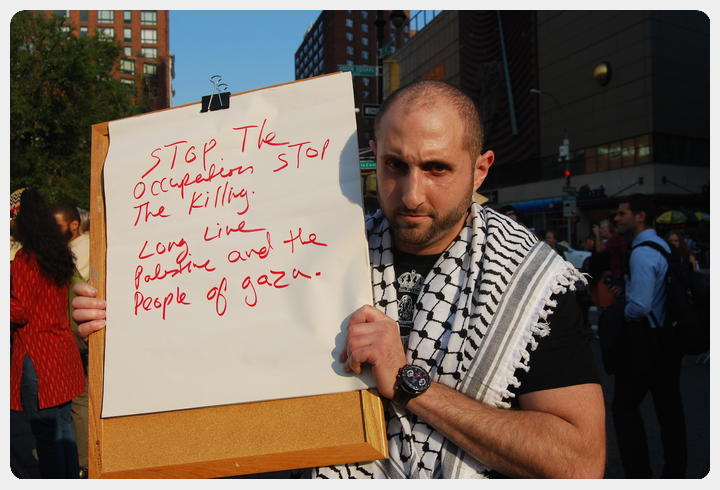 STOP The
occupation STOP
The Killing.
Long Live
Palestine and the
People of gaza.